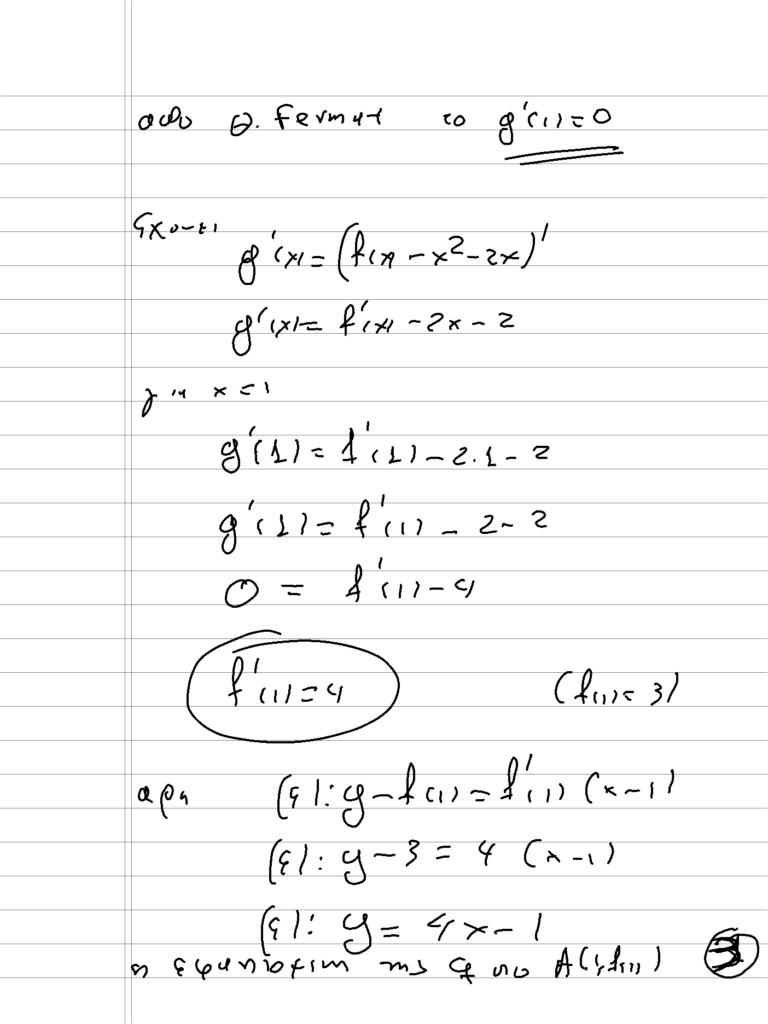 από Θ. Fermat το g'(1)=0
έχουμε
g'(x)=(f(x)-x²-2x)'
g'(x)=f'(x)-2x-2
για x=1
g'(1)=f'(1)-2.1-2
g'(1)=f'(1)-2-2
0 = f'(1)-4
f'(1)=4 (f(1)=3)
αρα (ε): y-f(1)=f'(1)(x-1)
(ε): y-3=4(x-1)
(ε): y=4x-1
η εφαπτομένη της Cf στο A(1,f(1)) 3